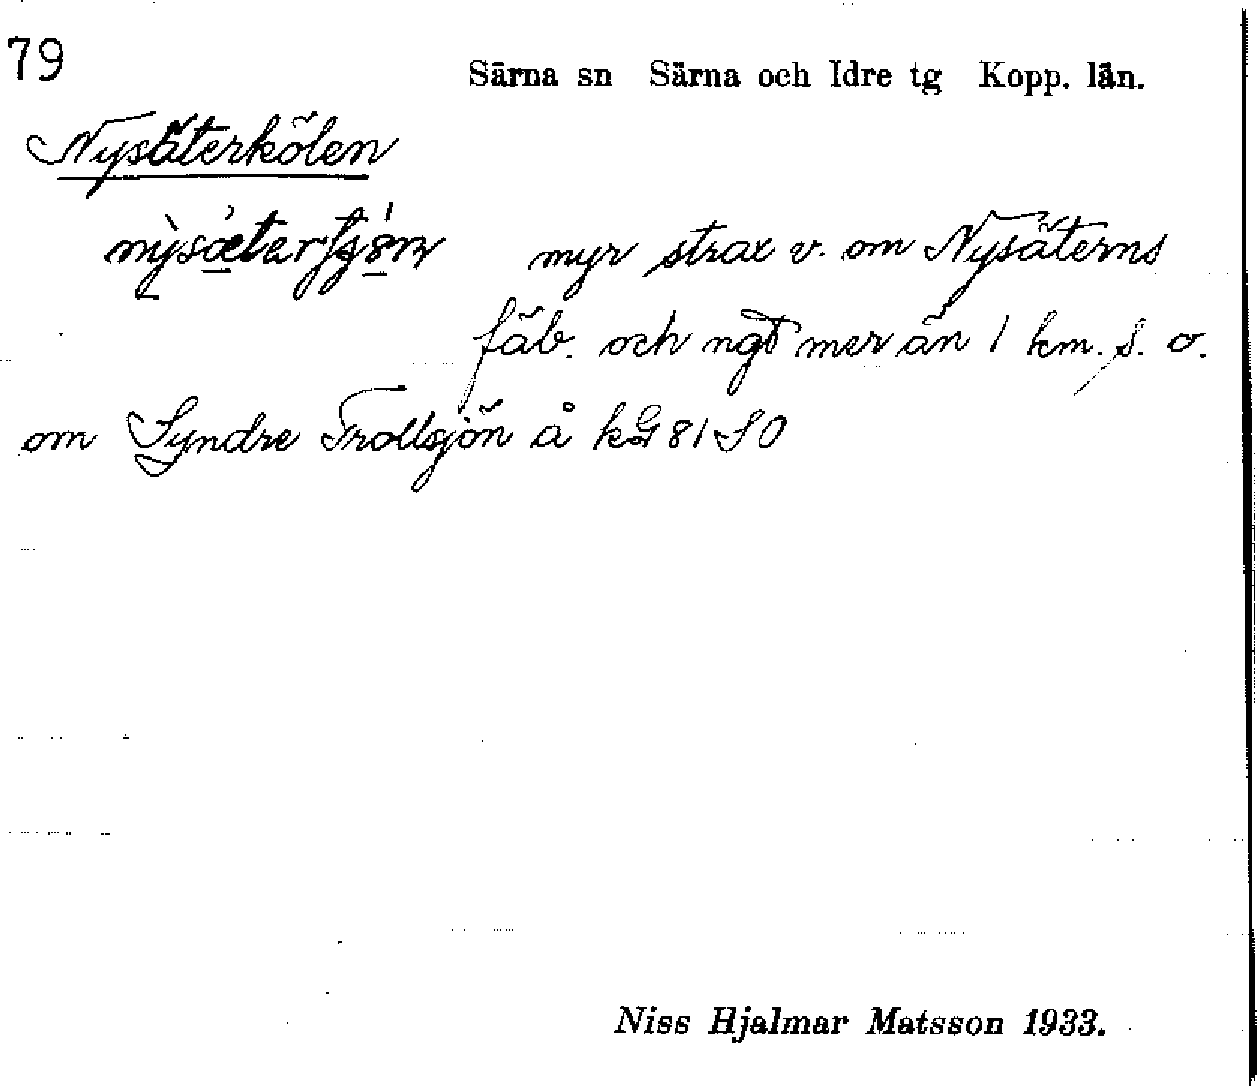 79
Särna sn Särna och Idre tg Kopp. län.
Nysäterkölen
myr strax v. om Nysäterns
fäb. och ngt mer än 1 km. s. o.
om Syndre Trollsjön å kG 81 SO
Niss Hjalmar Matsson 1933.